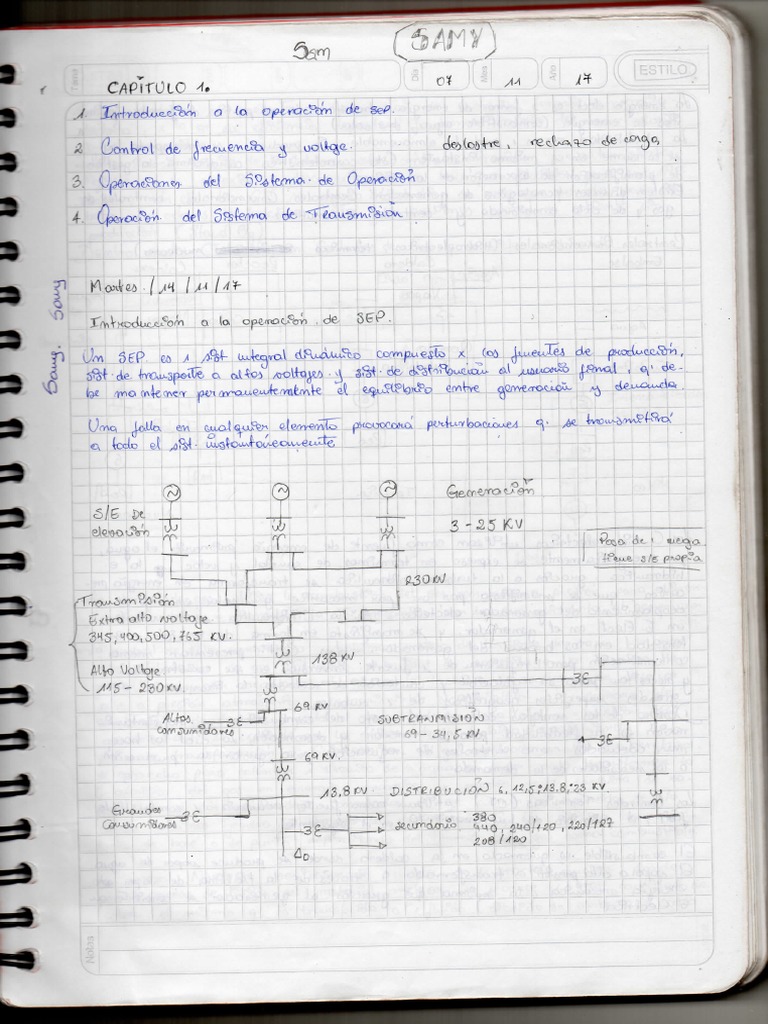 Sam
SAMY
Tema
CAPÍTULO 1.
Día 07 Mes 11 Año 17
ESTILO
1. Introducción a la operación de SEP.
2 Control de frecuencia y voltge. deslastre, rechazo de carga
3. Operaciones del Sistema de Operación
4. Operación del Sistema de Transmisión
Samy. Samy
Martes / 14 / 11 / 17
Introducción a la operación de SEP.
Un SEP es 1 sist integral dinámico compuesto x las fuentes de producción,
sist. de transporte a altos voltajes y sist. de distribución al usuario final, q' de-
be mantener permanentemente el equilibrio entre generación y demanda.
Una falla en cualquier elemento provocará perturbaciones q. se transmitirá
a todo el sist. instantáneamente
S/E De
elevación
Generación
3 - 25 KV
Pasa de 1 mega
tiene S/E propia
230 KV
Transmisión
Extra alto voltage
345, 400, 500, 765 KV.
Alto Voltage
115 - 230 KV.
138 KV
69 KV
Altos
consumidores
SUBTRANMISIÓN
69 - 34,5 KV
69 KV.
13.8 KV
DISTRIBUCIÓN 6, 12,5; 13.8; 23 KV.
Grandes
Consumidores
secundario
380
440, 240/120, 220/127
208/120
Notas